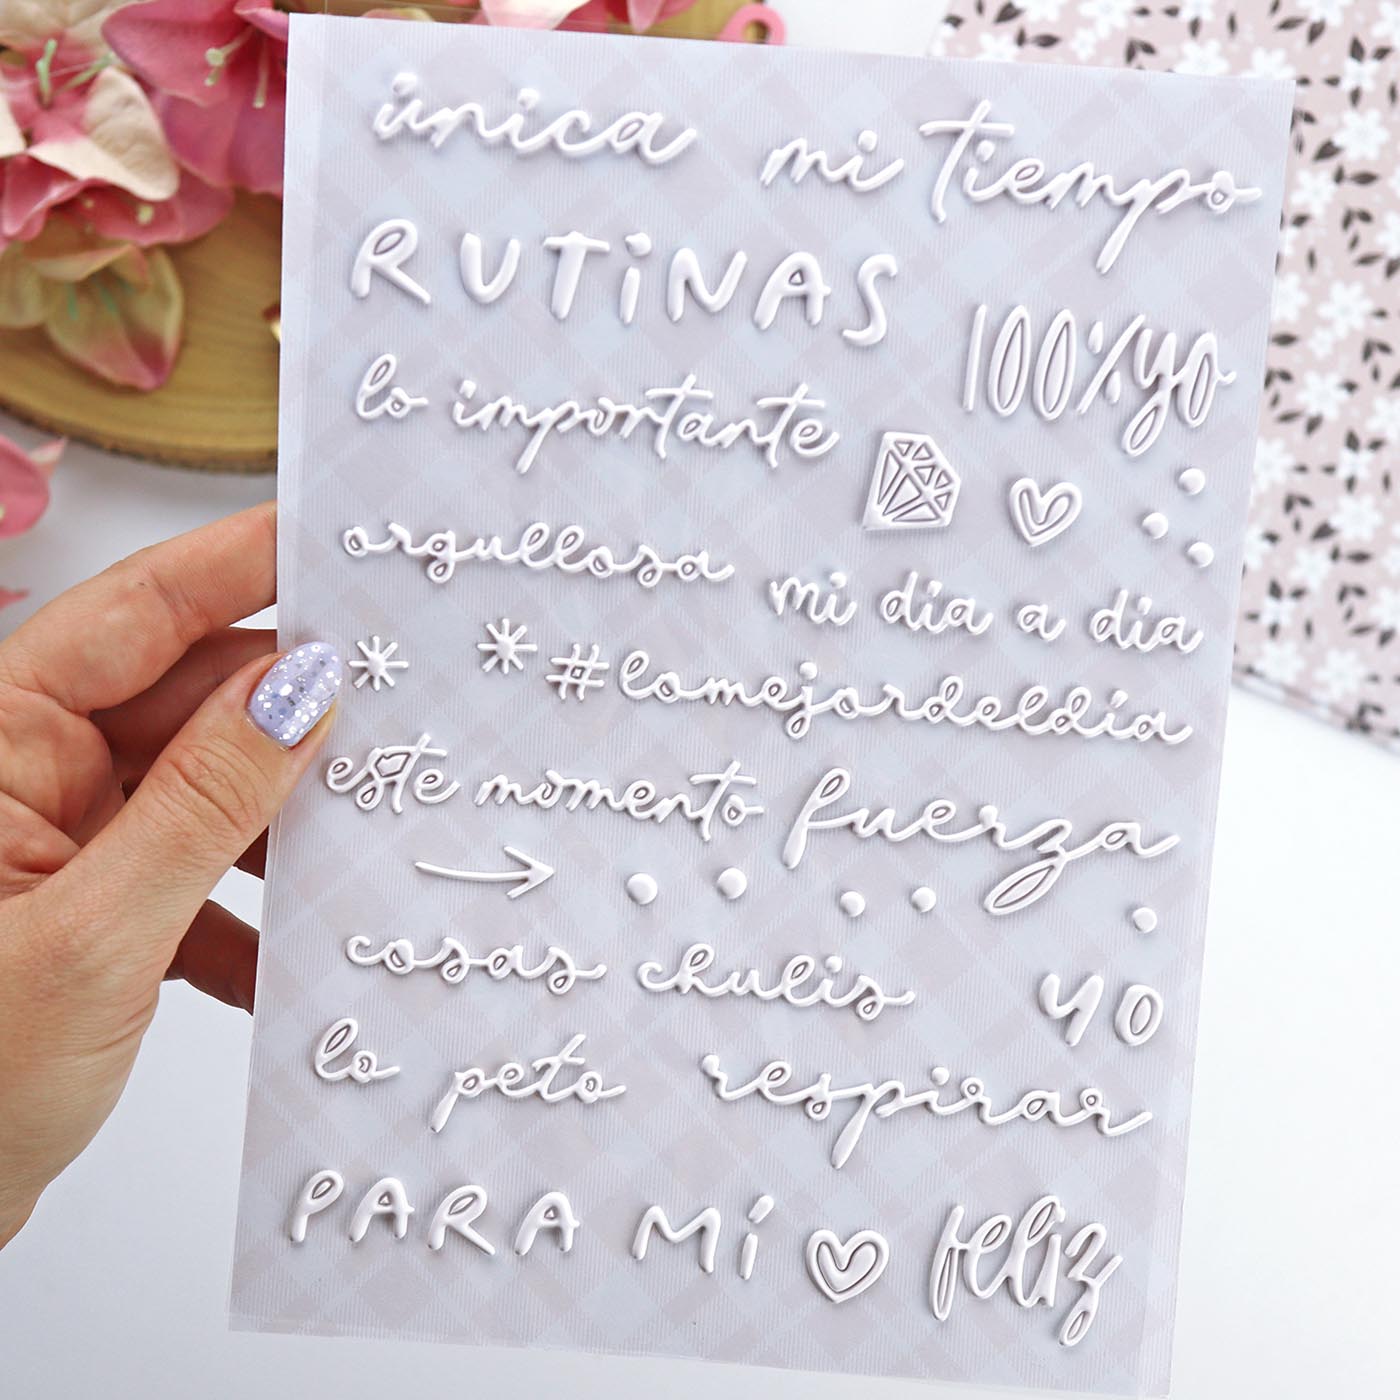 única mi tiempo
RUTINAS
100%yo
lo importante
orgullosa mi día a día
#lomejordeldía
este momento fuerza
cosas chulis yo
lo peto respirar
PARA MÍ feliz